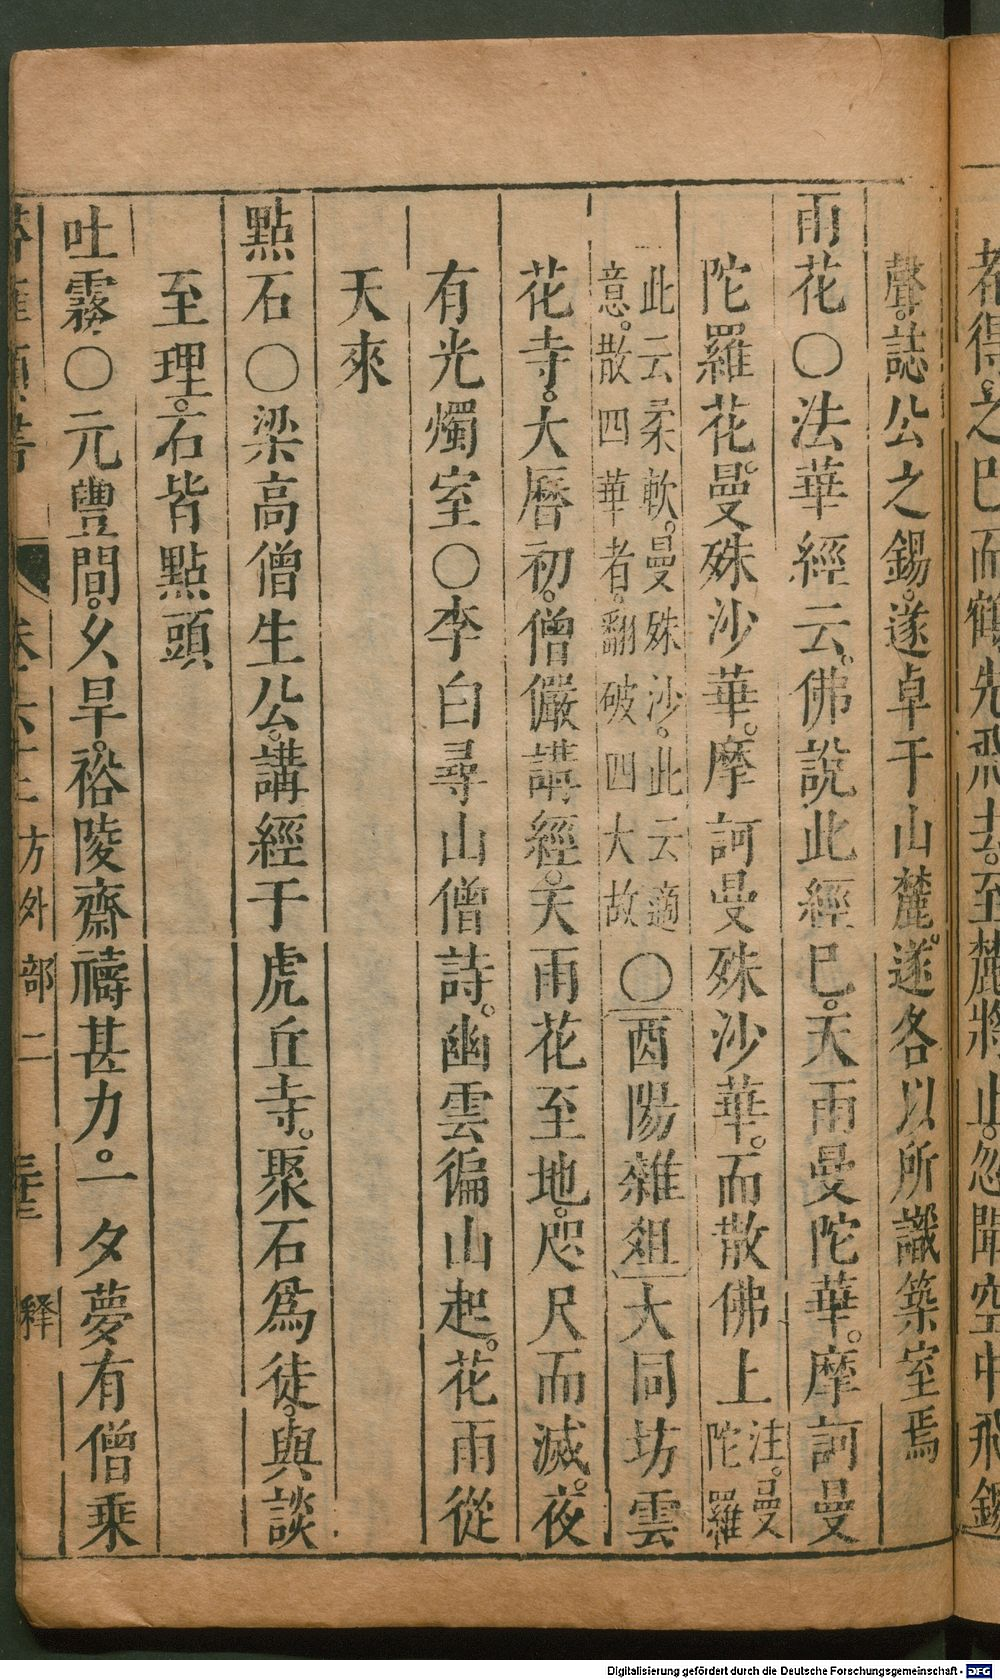 都得之已而鶴先飛去。至麓將止。忽聞空中飛錫
聲。誌公之錫。遂卓于山麓。遂各以所識築室焉
雨花〇法華經云。佛說此經已。天雨曼陀華。摩訶曼
陀羅花。曼殊沙華。摩訶曼殊沙華。而散佛上
注。曼
陀羅
此云柔軟。曼殊沙。此云適
意。散四華者。翻破四大故
〇酉陽雜俎大同坊雲
花寺。大曆初。僧儼講經。天雨花至地。咫尺而滅。夜
有光燭室〇李白尋山僧詩。幽雲徧山起。花雨從
天來
點石〇梁高僧生公。講經于虎丘寺。聚石爲徒。與談
至理。石皆點頭
吐霧〇元豐間。久旱。裕陵齋禱甚力。一夕夢有僧乘
類書 卷六十三 方外部二 釋
Digitalisierung gefördert durch die Deutsche Forschungsgemeinschaft - DFG